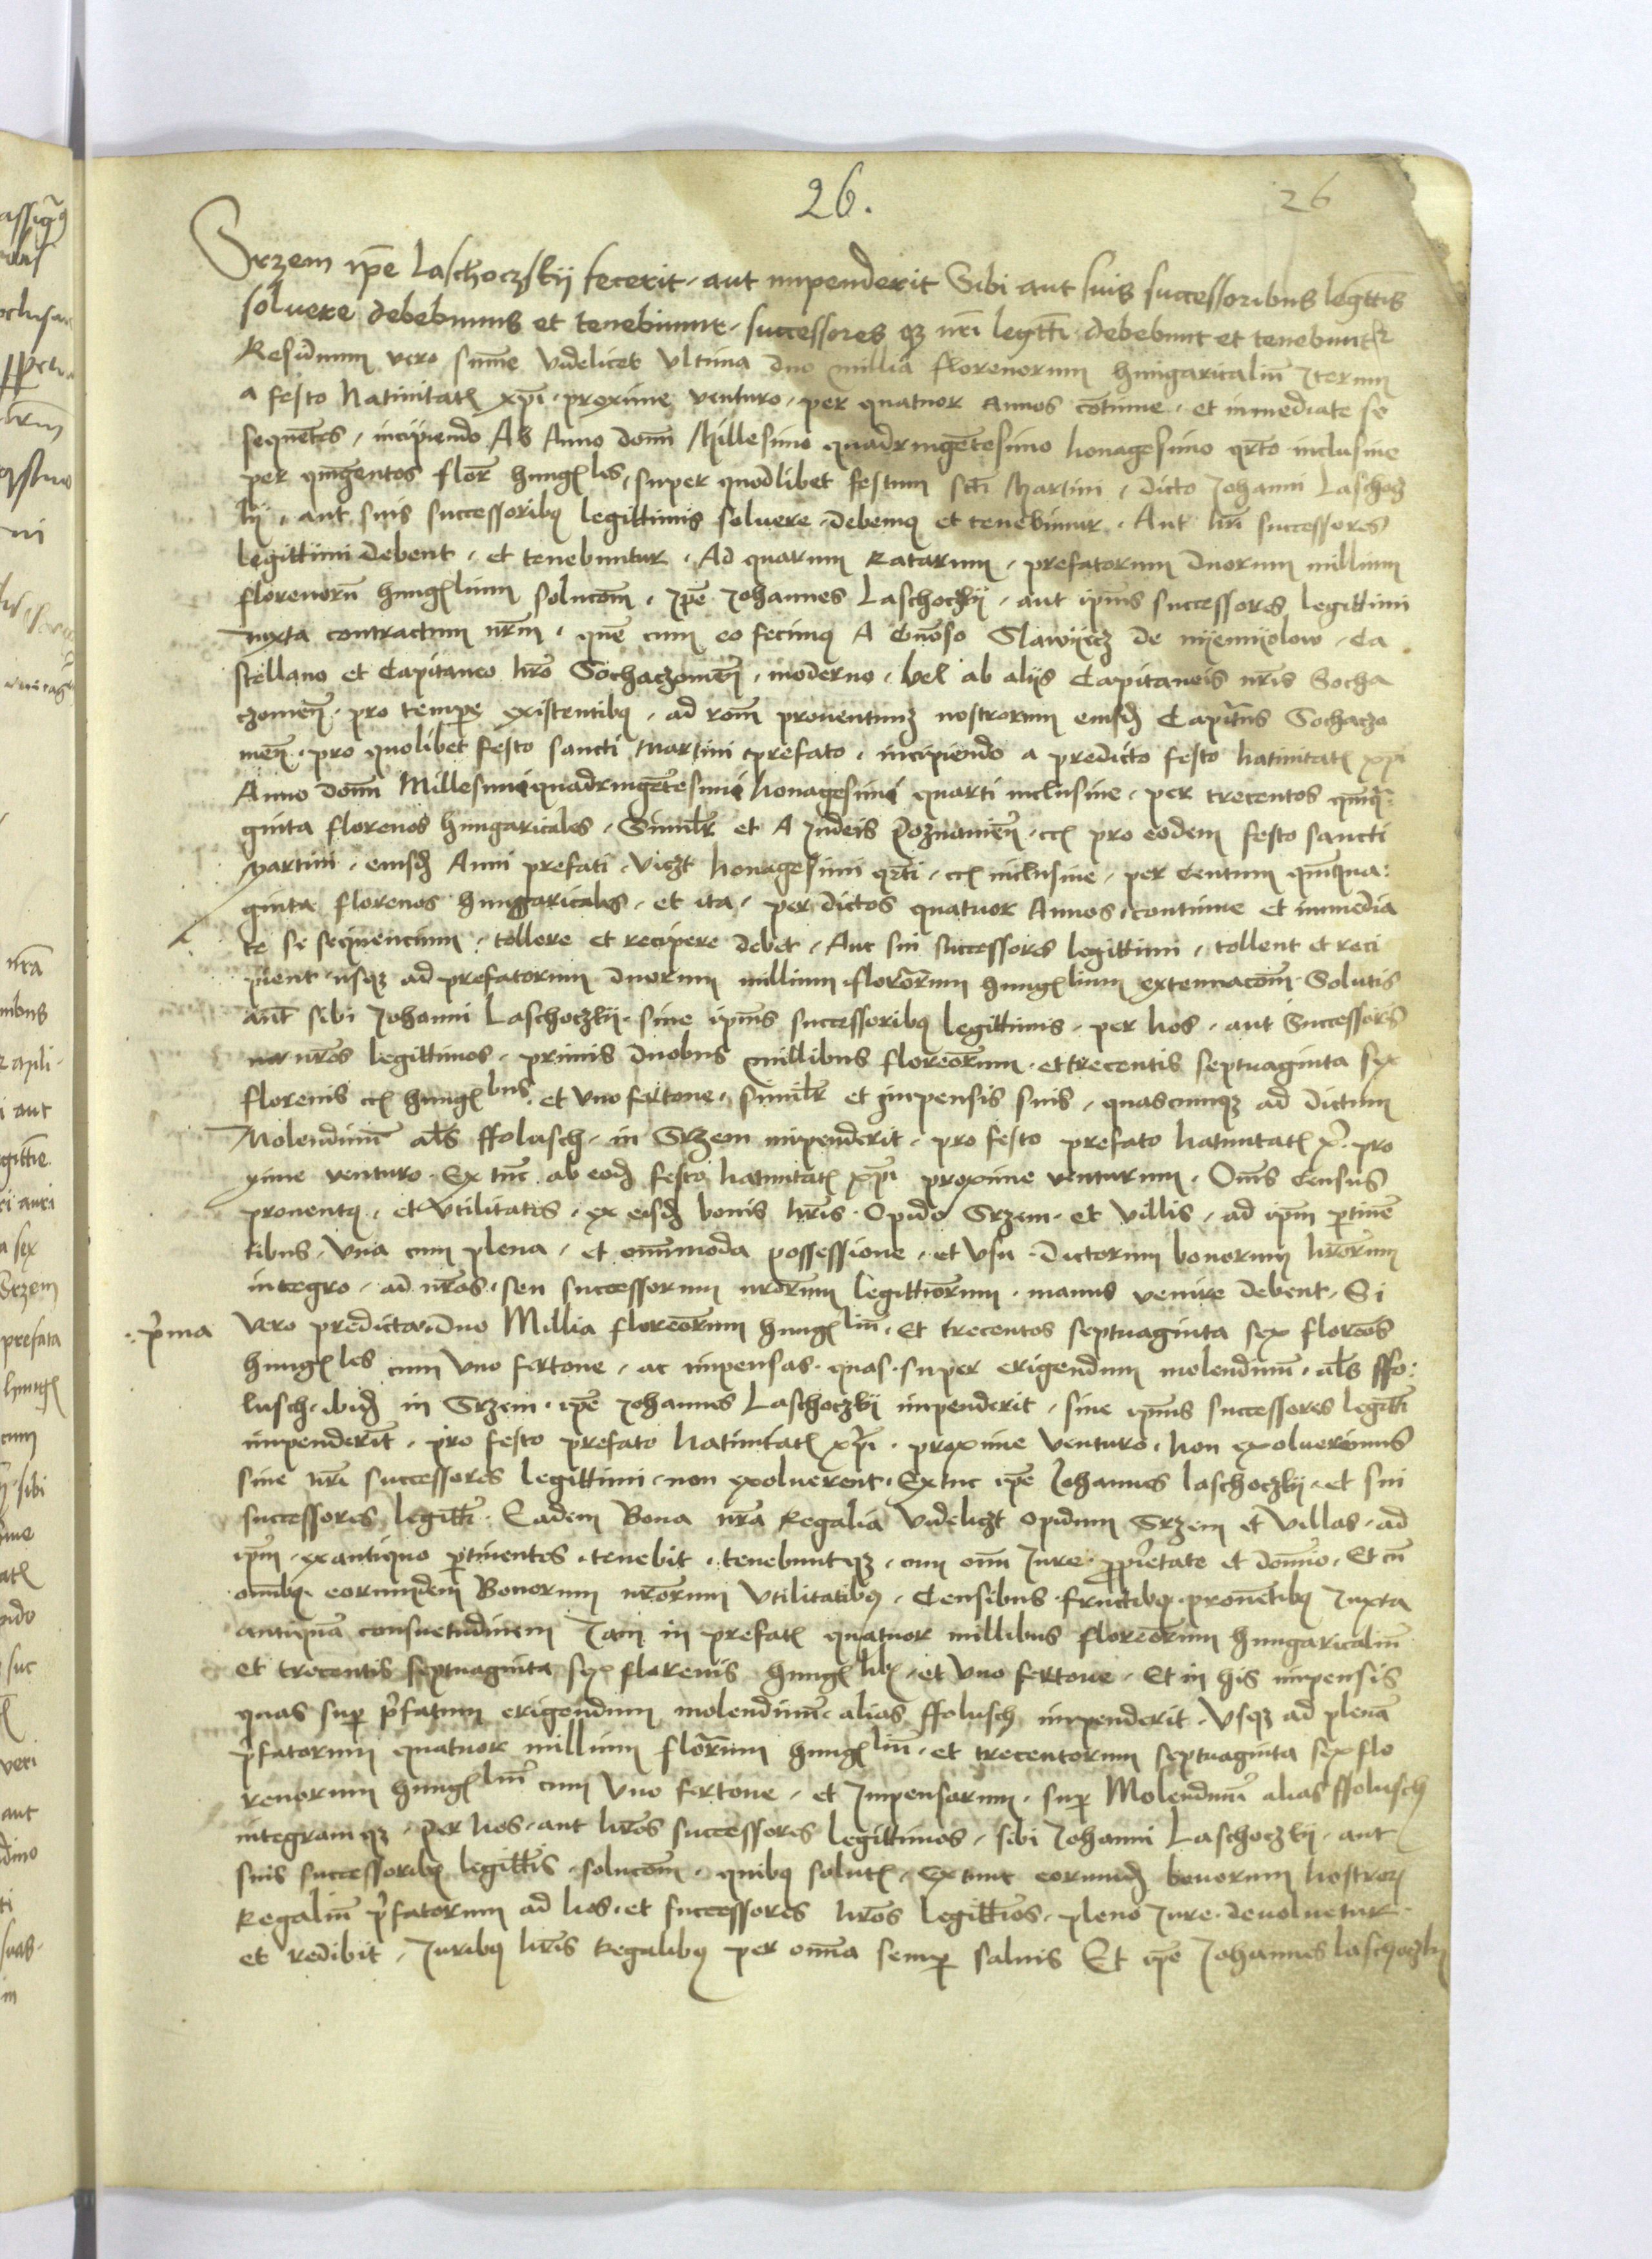 26.
26
Srzem ip̄e Laschoczskij fecerit, aut impenderit Sibi aut suis successoribus legttis
soluere debebimus et tenebimur, successores q₃ nr̄i legttĩ debebunt et tenebuntr
Residuum vero sum̄e videlicet vltima duo millia florenorum hungaricaliū Iterum
a festo Natiuitat xpī proxime venturo, per quatuor annos cōtinue, et inmediate se
sequētes, incipiendo Ab Anno domī Millesimo quadringētesimo Nonagesimo qrto inclusiue
per quīgentos flor hungles, super quodlibet festum scti Martini, dicto Johanni Laschocz
kij, aut suis successorib₉ legittimis soluere debem₉ et tenebimur, Aut nr̄i successores
legittimi debent, et tenebuntur, Ad quarum Ratarum, prefatorum duorum millium
florenorū hunglium solucōem, Ip̄e Johannes Laschoczkij, aut ipīus successores legittimi
Iuxta contractum nr̄m, quē cum eo fecim₉ A Gn̄oso Slawijecz de mijemijolow, Ca
stellano et Capitaneo nr̄o Sochaczouien̄, moderno, vel ab alijs Capitaneis nr̄is Socha
czouien̄, pro tempe existentib₉, ad rōm prouentuu₃ nostrorum eiusd Capitūs Sochaczo
uien̄, pro quolibet festo sancti Martini prefato, incipiendo a predicto festo Natiuitat xpī
Anno domī Millesimi quadringētesimi Nonagesimi quarti inclusiue, per trecentos quīqua
ginta florenos hungaricales, Similr et A Iudeis Poznanien̄, ccl pro eodem festo sancti
Martini, eiusd Anni prefati, viczt Nonagesimi qrti, ccl inclusiue, per Centum quīqua:
ginta florenos hungaricales, et ita, per dictos quatuor Annos, continue et inmedia
te se sequencium, tollere et recipere debet, Aut sui successores legittimi, tollent et reci
pient usq₃ ad prefatorum duorum millium florōrum hunglium extenuacōem. Solutis
aūt sibi Johanni Laschoczkij siue ipīus successorib₉ legittimis, per Nos, aut Successores
nr̄os legittimos, primis duobus millibus floreōrum, et trecentis septuaginta sex
florenis ccl hunglbus, et vno fertone, similr et impensis suis, quascumq₃ ad dictum
Molendinū als ffolusch, in Srzem impenderit, pro festo prefato Natiuitat xi pro
xime venturo. Ex tūc ab eod festo Natiuitat xpī proxime venturum, Om̄s Census
prouent₉, et vtilitates, ex eisd bonis nr̄is Opido Srzem et villis, ad ip̄m ptinē
tibus, vna cum plena, et om̄imoda possessione, et vsu dictorum bonorum nr̄orum
integro, ad nr̄as, seu successorum nr̄orum legittiōrum, manus venire debent, Si
·:prima
vero predicta Duo Millia floreōrum hungliū, et trecentos septuaginta sex floreos
hungles cum vno fertone, ac impensas, quas, super erigendum molendinū, als ffo:
lusch, ibid in Srzem, ip̄e Johannes Laschoczkij impenderit, siue ipīus successores legitti
impenderīt, pro festo prefato Natiuitat xpī, proxime venturo, non exoluerimus
siue nr̄i successores legittimi, non exoluerent, Extūc ip̄e Johannes laschoczkij, et sui
successores legitti, Eadem Bona nr̄a Regalia videliczt opidum Srzem et villas, ad
ip̄m, ex antiquo ptinentes, tenebit, tenebuntq₃, cum om̄i Iure proprietate et domīo, Et cū
om̄ib₉ eorumdem Bonorum nr̄orum vtilitatib₉, Censibus fructib₉ prouētib₉ Iuxta
antiquā consuetudinem Iam in prefat quatuor millibus floreōrum hungaricaliū
et trecentis septuaginta sex florenis hunglibl, et vno fertone, Et in his impensis
quas sup pfatum erigendum molendinū alias ffolusch impenderit, Vsq₃ ad plenā
pfatorum quatuor millium florūm hungliū, et trecentorum septuaginta sex flo
renorum hungliū cum vno fertone, et Impensarum, sup Molendinū alias ffolusch
integramq₃, per Nos, aut nr̄os successores legittimos, sibi Johanni Laschoczkij, aut
suis successorib₉ legittis, solucōem, quib₉ solut, Extunc eorumd bonorum nostror
Regaliū pfatorum ad Nos, et successores nr̄os legittios, pleno Iure deuoluetur
et redibit, Iurib₉ nr̄is Regalib₉ per om̄ia semp saluis Et ip̄e Johannes laschoczkij